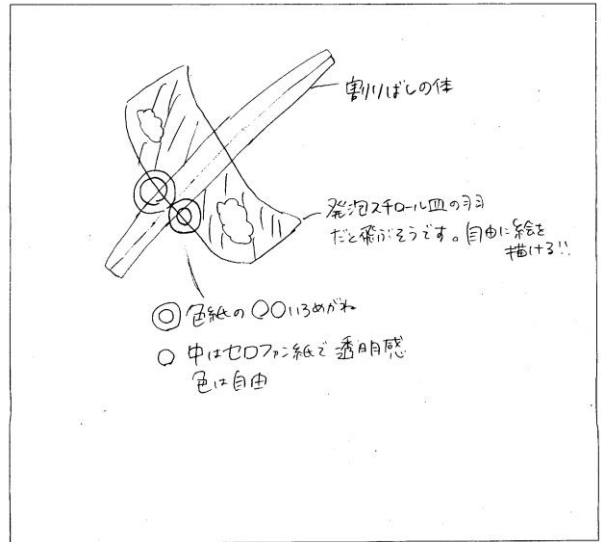 割りばしの体
発泡スチロール皿の羽
だと飛ぶそうです。自由に絵を
描ける!!
◎ 色紙の〇〇いろめがね
○ 中はセロファン紙で透明感
色は自由